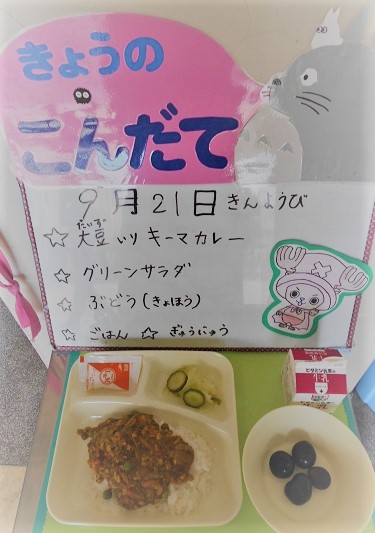 きょうの
こんだて
9月21日 きんようび
☆ 大豆(だいず)いり キーマカレー
☆ グリーンサラダ
☆ ぶどう(きょほう)
☆ ごはん ☆ ぎゅうにゅう